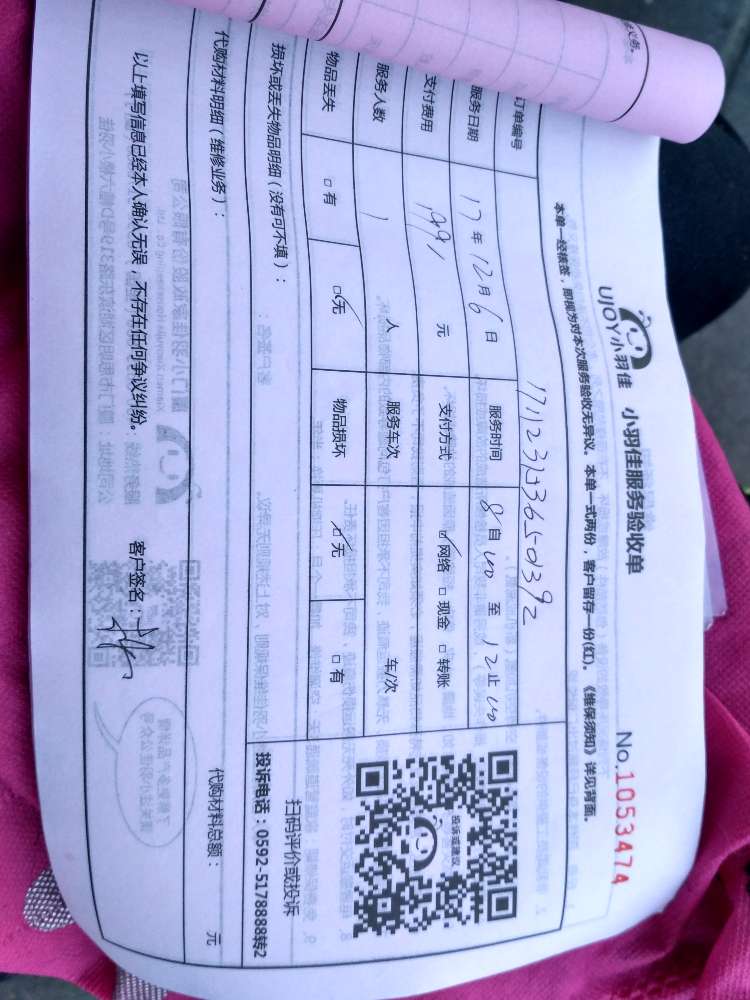 UJOY小羽佳 小羽佳服务验收单
No.1053474
本单一经核签，即视为对本次服务验收无异议。本单一式两份，客户留存一份(红)。《维保须知》详见背面。
订单编号
服务日期 17年12月6日 服务时间 8自00至12止00
支付费用 元 支付方式 ☑网络 □现金 □转账
服务人数 1 人 服务车次 车/次
物品丢失 □有 ☑无 物品损坏 ☑无 □有
损坏或丢失物品明细（没有可不填）：
投诉或建议
扫码评价或投诉
投诉电话：0592-5178888转2
代购材料明细（维修业务）：
代购材料总额： 元
以上填写信息已经本人确认无误，不存在任何争议纠纷。 客户签名：